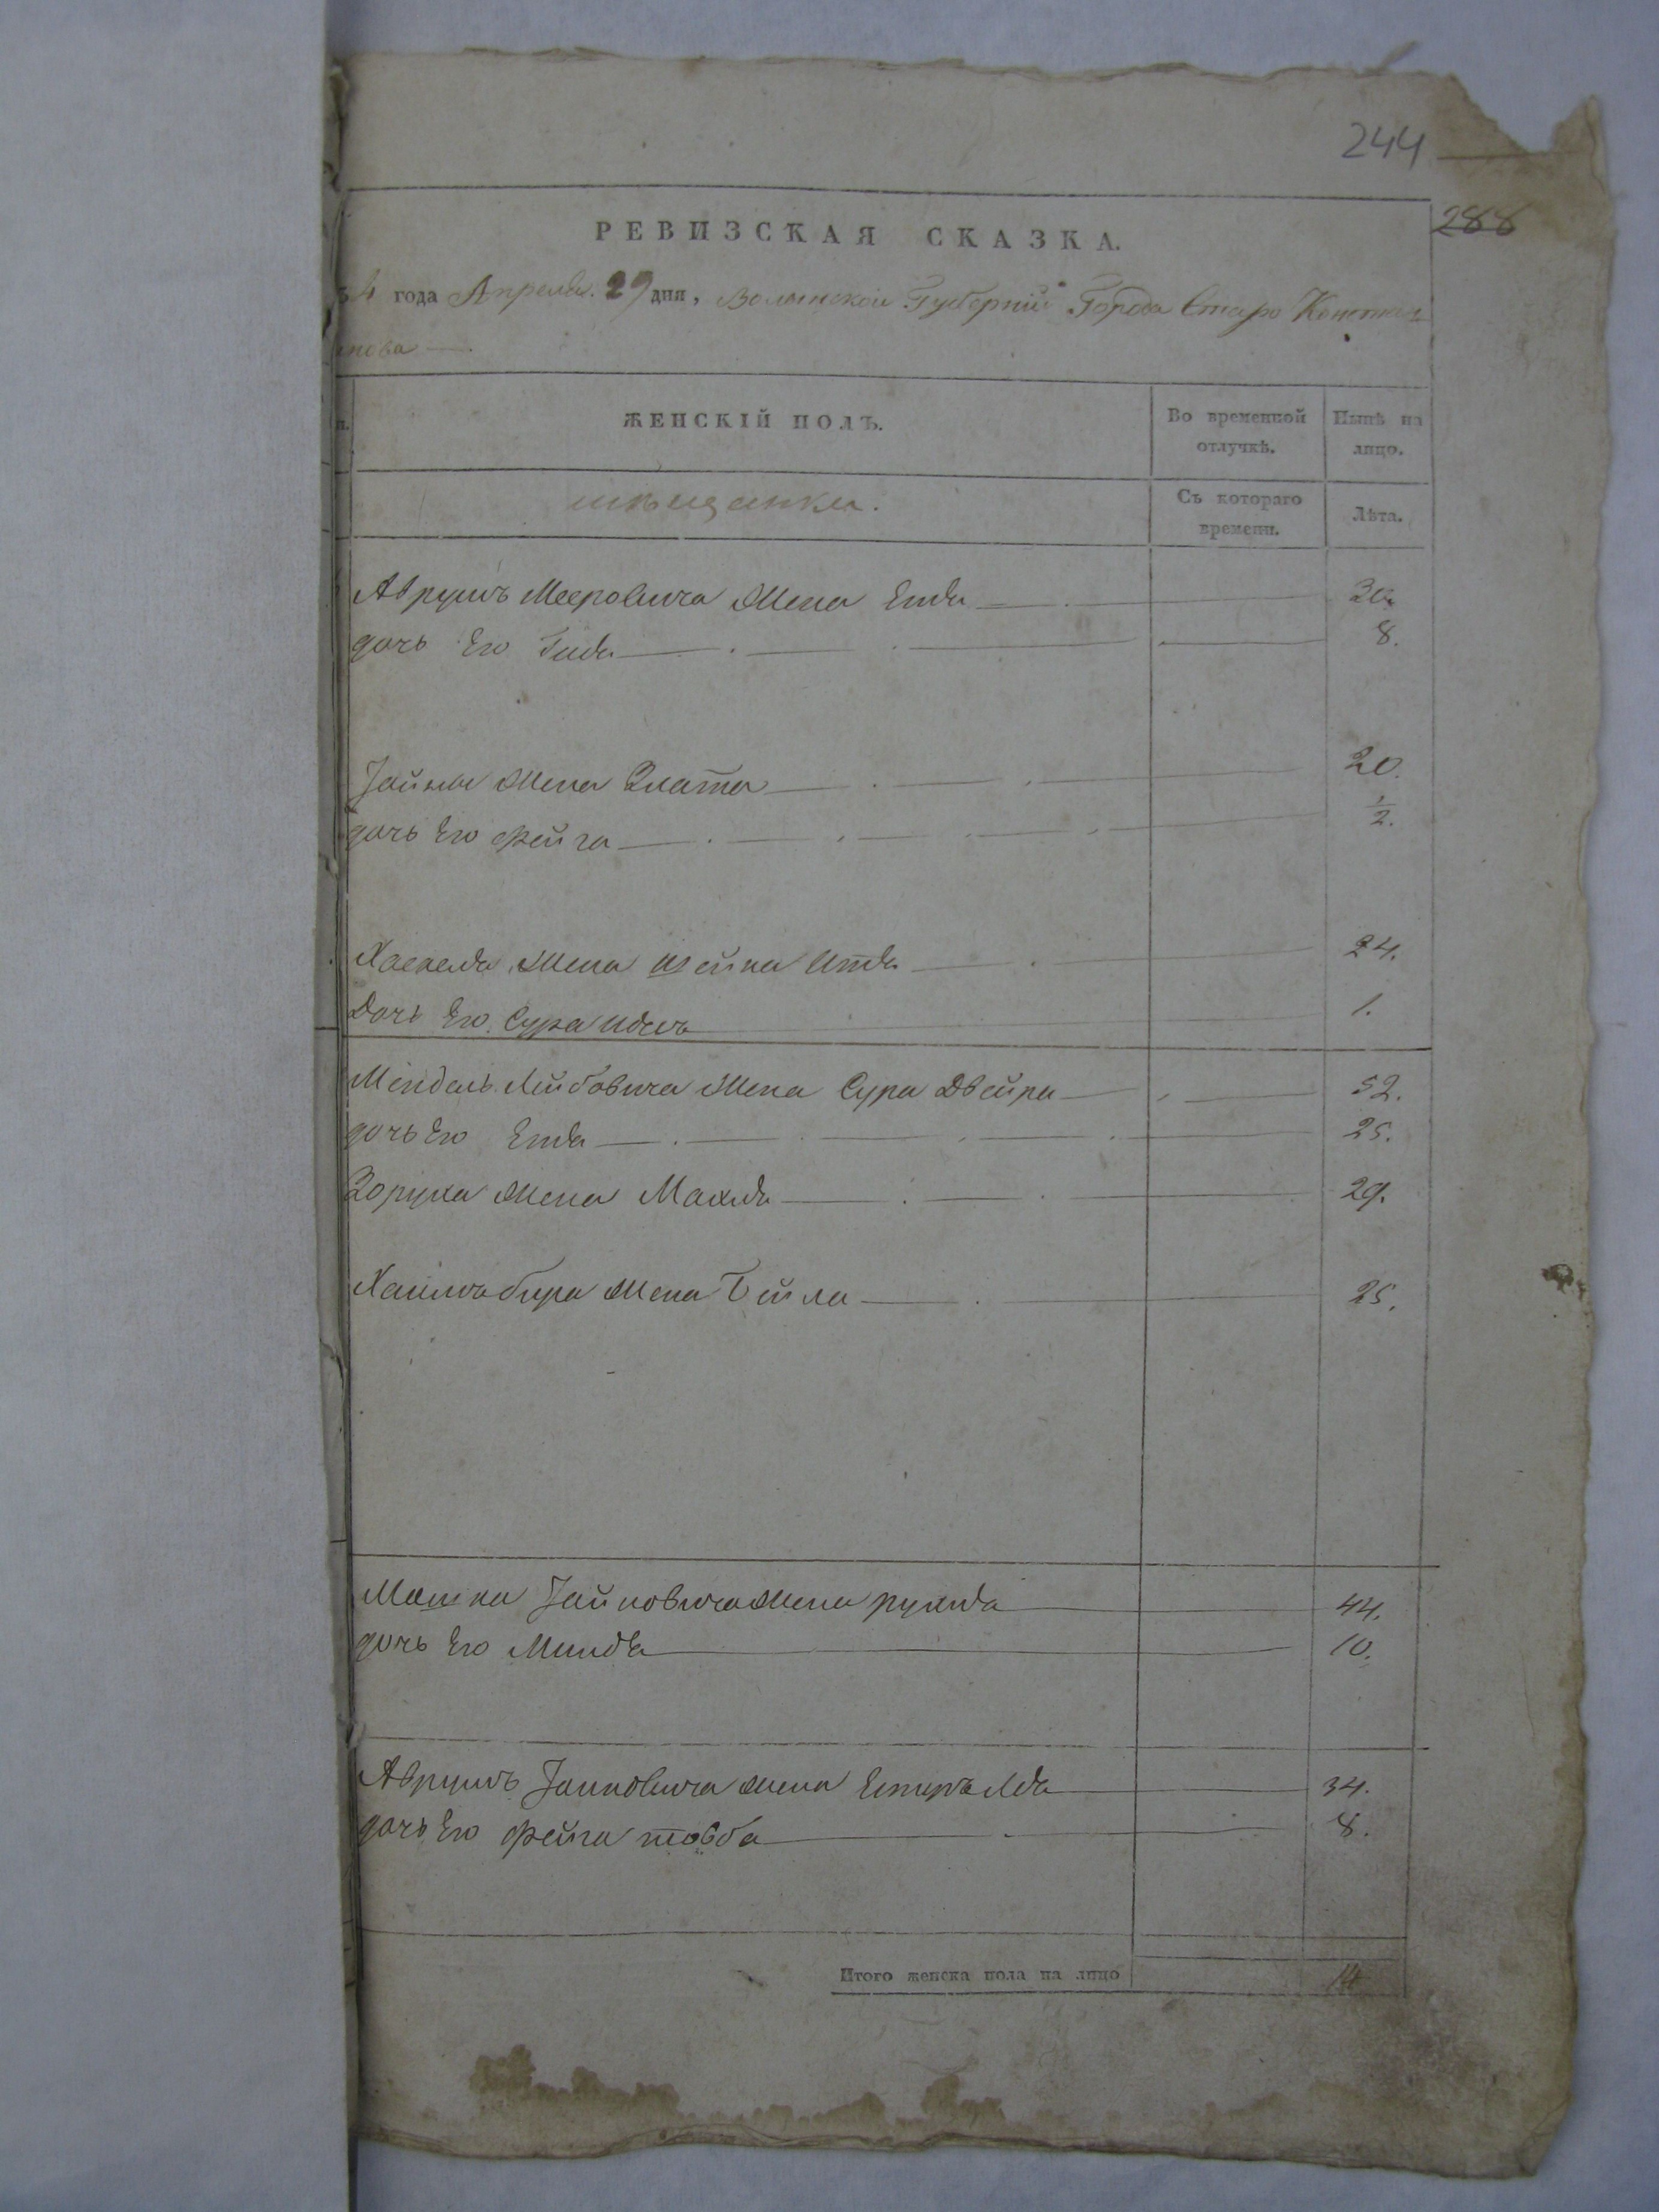 244
288
РЕВИЗСКАЯ СКАЗКА.
4 года Апреля 29 дня, Волынской Губерніи Города Старо Констан
нова
ЖЕНСКІЙ ПОЛЪ.
Во временной отлучкѣ.
Нынѣ на лицо.
мѣщанки.
Съ котораго времени.
Лѣта.
Аврумъ Мееровича Жена Ентя 30.
дочь Его Гитля 8.
Жена Злата 20.
дочь Его Фейга 1/2.
Хаскеля Жена Шейна Итя 24.
Дочь Его Сура 1.
Мендель Лейбовича Жена Сура Двейра 52.
дочь Его Ентя 25.
Зоруха Жена Махля 29.
Жена Бейла 25.
Мошка Жена рухля 44.
дочь Его Миндя 10.
Аврумъ жена 34.
дочь Его Фейга товба 8.
Итого женска пола на лицо 14